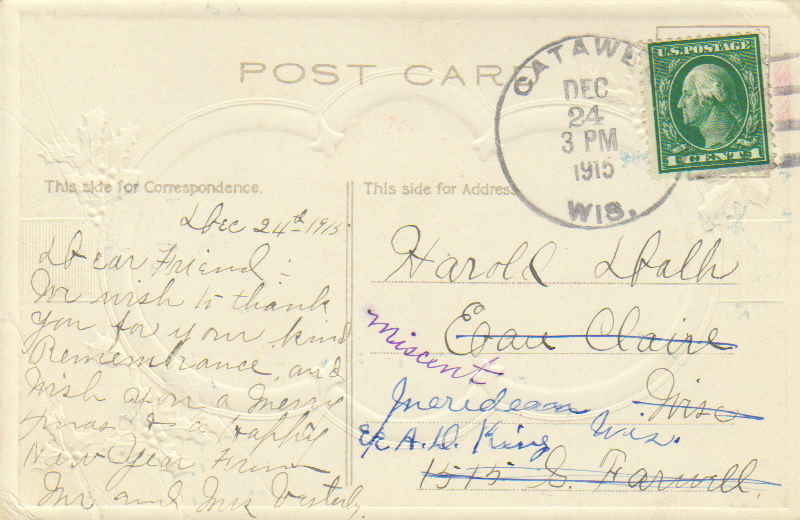 POST CARD
CATAW
DEC
24
3 PM
1915
WIS.
U.S. POSTAGE
1 CENT 1
This side for Correspondence.
This side for Address.
Dec 24th 1915
Dear Friend -
We wish to thank
you for your kind
Remembrance and
Wish you a Merry
Xmas & a Happy
New Year From
Mr and Mrs
Harold
Eau Claire
Miscent
Meridean Wisc
c/o A.D. King Wis.
1515 S. Farwell